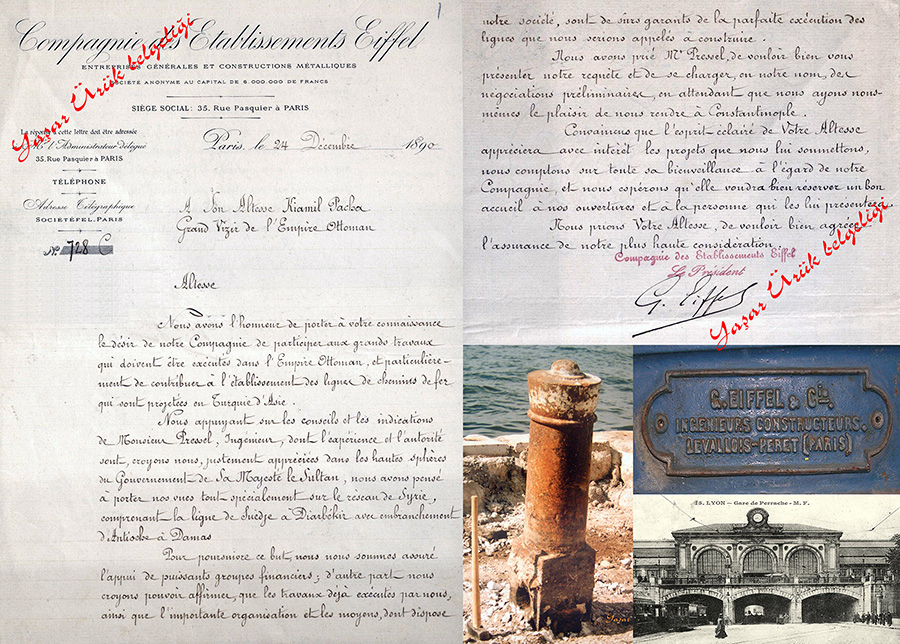 1
Compagnie des Etablissements Eiffel
ENTREPRISES GÉNÉRALES ET CONSTRUCTIONS MÉTALLIQUES
SOCIÉTÉ ANONYME AU CAPITAL DE 6.000.000 DE FRANCS
SIÈGE SOCIAL: 35. Rue Pasquier à PARIS
La réponse à cette lettre doit être adressée
à Mr. l'Administrateur délégué
35. Rue Pasquier à PARIS
TÉLÉPHONE
Adresse Télégraphique
SOCIÉTÉFEL. PARIS
No. 728 C
Paris, le 24 Décembre 1890
A Son Altesse Kiamil Pacha
Grand Vizir de l'Empire Ottoman
Altesse
Nous avons l'honneur de porter à votre connaissance
le désir de notre Compagnie de participer aux grands travaux
qui doivent être exécutés dans l'Empire Ottoman, et particulière-
ment de contribuer à l'établissement des lignes de chemins de fer
qui sont projetées en Turquie d'Asie.
Nous appuyant sur les conseils et les indications
de Monsieur Pressel, Ingénieur, dont l'expérience et l'autorité
sont, croyons nous, justement appréciées dans les hautes sphères
du Gouvernement de Sa Majesté le Sultan, nous avons pensé
à porter nos vues tout spécialement sur le réseau de Syrie,
comprenant la ligne de Suèdje à Diarbékir avec embranchement
d'Antioche à Damas
Pour poursuivre ce but, nous nous sommes assuré
l'appui de puissants groupes financiers; d'autre part nous
croyons pouvoir affirmer, que les travaux déjà exécutés par nous,
ainsi que l'importante organisation et les moyens, dont dispose
Yaşar Ürük belgeliği
notre société, sont de sûrs garants de la parfaite exécution des
lignes que nous serions appelés à construire.
Nous avons prié Mr Pressel, de vouloir bien vous
présenter notre requête et de se charger, en notre nom, des
négociations préliminaires, en attendant que nous ayons nous-
mêmes le plaisir de nous rendre à Constantinople.
Convaincus que l'esprit éclairé de Votre Altesse
appréciera avec intérêt les projets que nous lui soumettons,
nous comptons sur toute sa bienveillance à l'égard de notre
Compagnie, et nous espérons qu'elle voudra bien réserver un bon
accueil à nos ouvertures et à la personne qui les lui présentera.
Nous prions Votre Altesse, de vouloir bien agréer
l'assurance de notre plus haute considération.
Compagnie des Etablissements Eiffel
Le Président
G. Eiffel
Yaşar Ürük belgeliği
Yaşar
G. EIFFEL & Cie.
INGENIEURS CONSTRUCTEURS.
LEVALLOIS-PERET (PARIS)
LYON – Gare de Perrache – M. F.